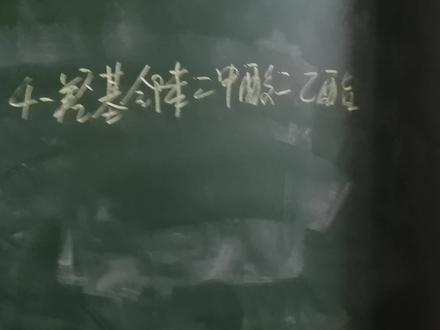 4-羟基邻苯二甲酸二乙酯